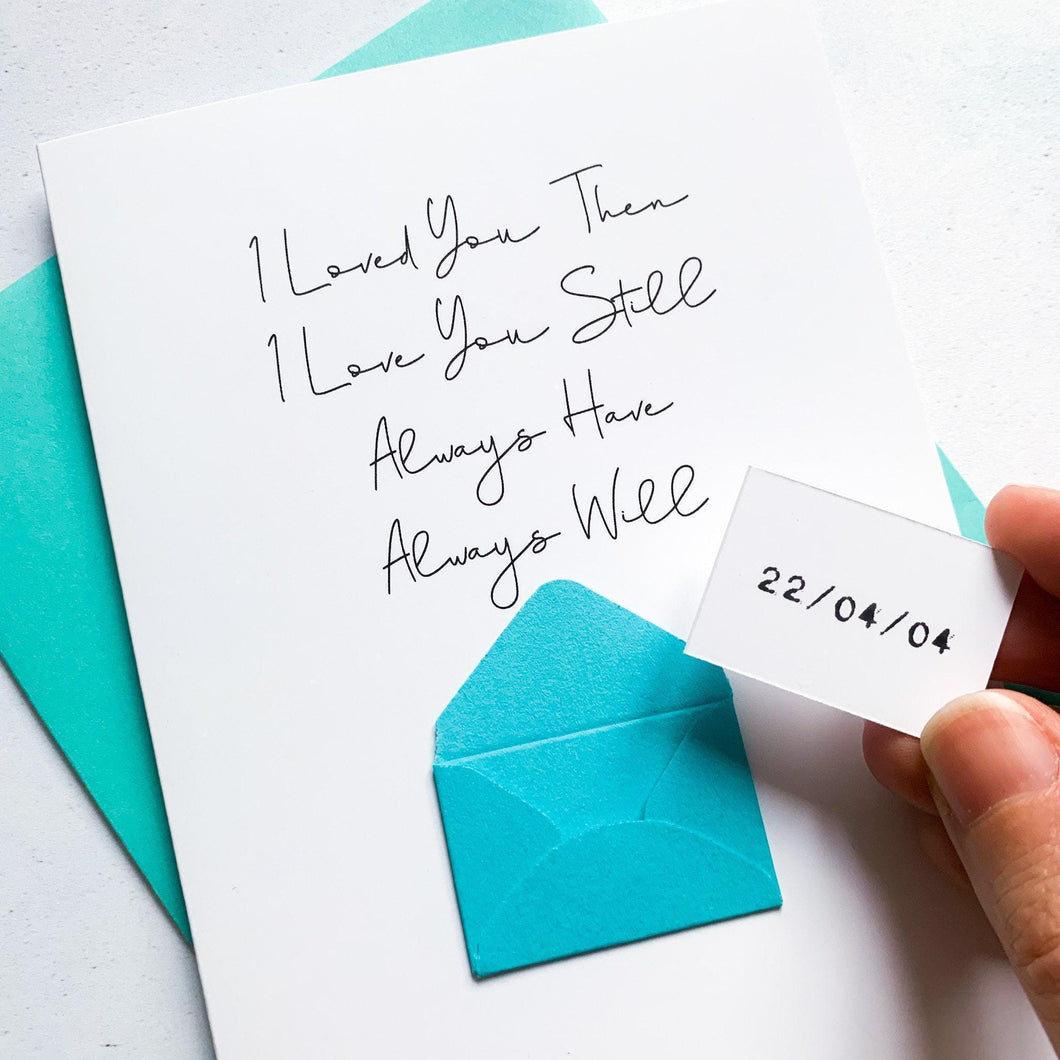 I Loved You Then
I Love You Still
Always Have
Always Will
22/04/04